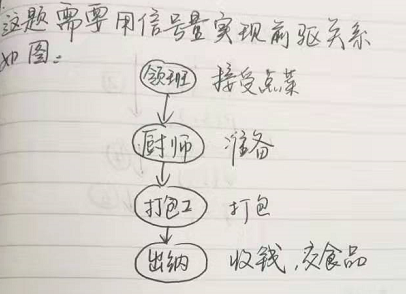 这题需要用信号量实现前驱关系
如图:
领班 接受点菜
厨师 准备
打包工 打包
出纳 收钱,交食品